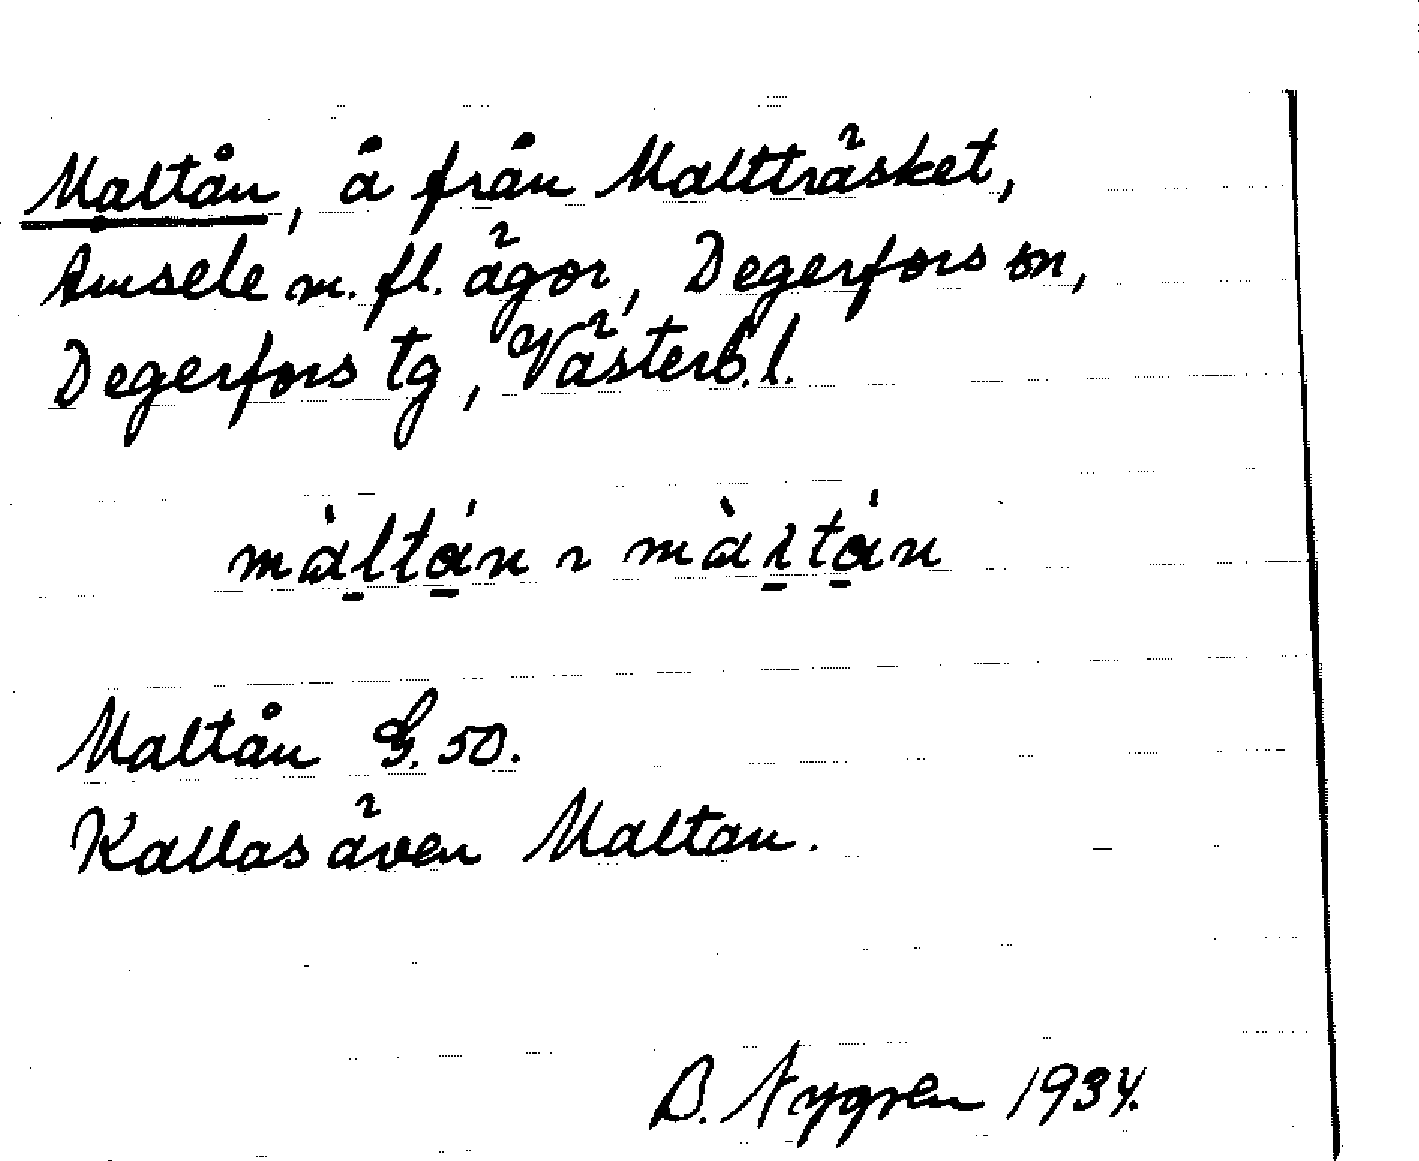 Maltån, å från Maltträsket,
Amsele m. fl. ägor, Degerfors sn,
Degerfors tg, Västerb.l.
màltán ~ màltán
Maltån G. 50.
Kallas även Maltan.
B. Nygren 1934.